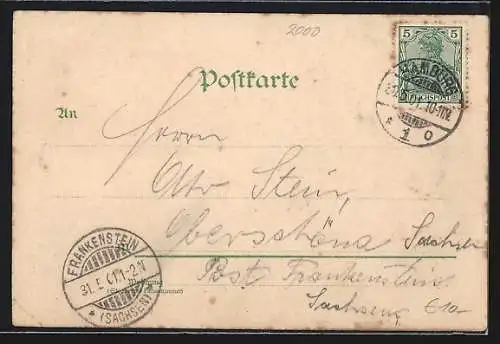 2000
5 5
REICHSPOST
HAMBURG
* 1 o
Postkarte
An
Herrn
Otto Stein,
Oberschöna Sachsen
Post Frankenstein
Sachsen
FRANKENSTEIN
31.5.01. 1-2.N
* (SACHSEN)